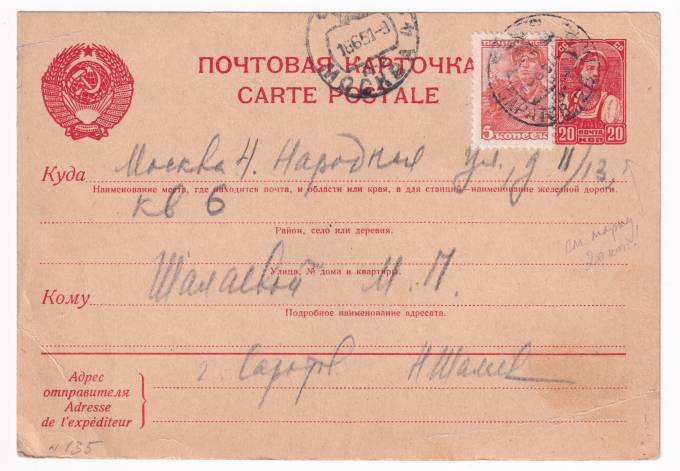 ПОЧТОВАЯ КАРТОЧКА
CARTE POSTALE
16651-9
МОСКВА
5 КОПЕЕК
20 ПОЧТА 20
КОП
Куда Москва 4. Народная ул, д 11/13,
Наименование места, где находится почта, и области или края, а для станции—наименование железной дороги.
кв 6
Район, село или деревня.
Улица, № дома и квартиры.
Кому Шалаевой М. П.
Подробное наименование адресата.
Адрес
отправителя
Adresse
de l'expéditeur
г. Саратов НШалаев
см. марку
20 коп.!
N 135